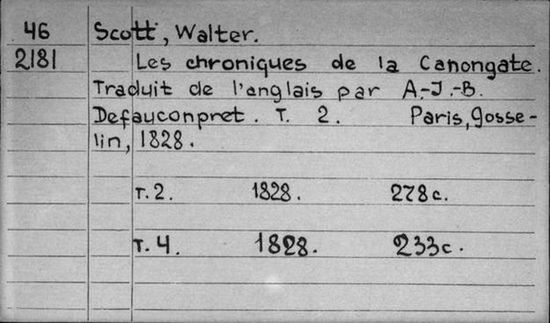 46 Scott, Walter.
2181 Les chroniques de la Canongate.
Traduit de l'anglais par A.-J.-B.
Defauconpret. T. 2. Paris, Gosse-
lin, 1828.
т. 2. 1828. 278 c.
т. 4. 1828. 233 c.